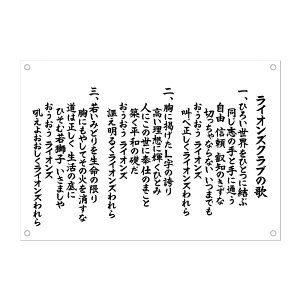 ライオンズクラブの歌
一、ひろい世界をひとつに結ぶ
同じ志の手と手に通う
自由 信頼 叡知のきずな
切っちゃならないいつまでも
叫べ正しくライオンズ
おうおう ライオンズ
二、胸に掲げたL字の誇り
高い理想に輝くひとみ
人にこの世に奉仕のまこと
築く平和の礎だ
謳え明るくライオンズわれら
おうおう ライオンズ
三、若いみどりを生命の限り
胸にもやしてその火を消すな
道は正しく生活の庭に
ひそむ若獅子 いさましや
吼えよおおしくライオンズわれら
おうおう ライオンズ